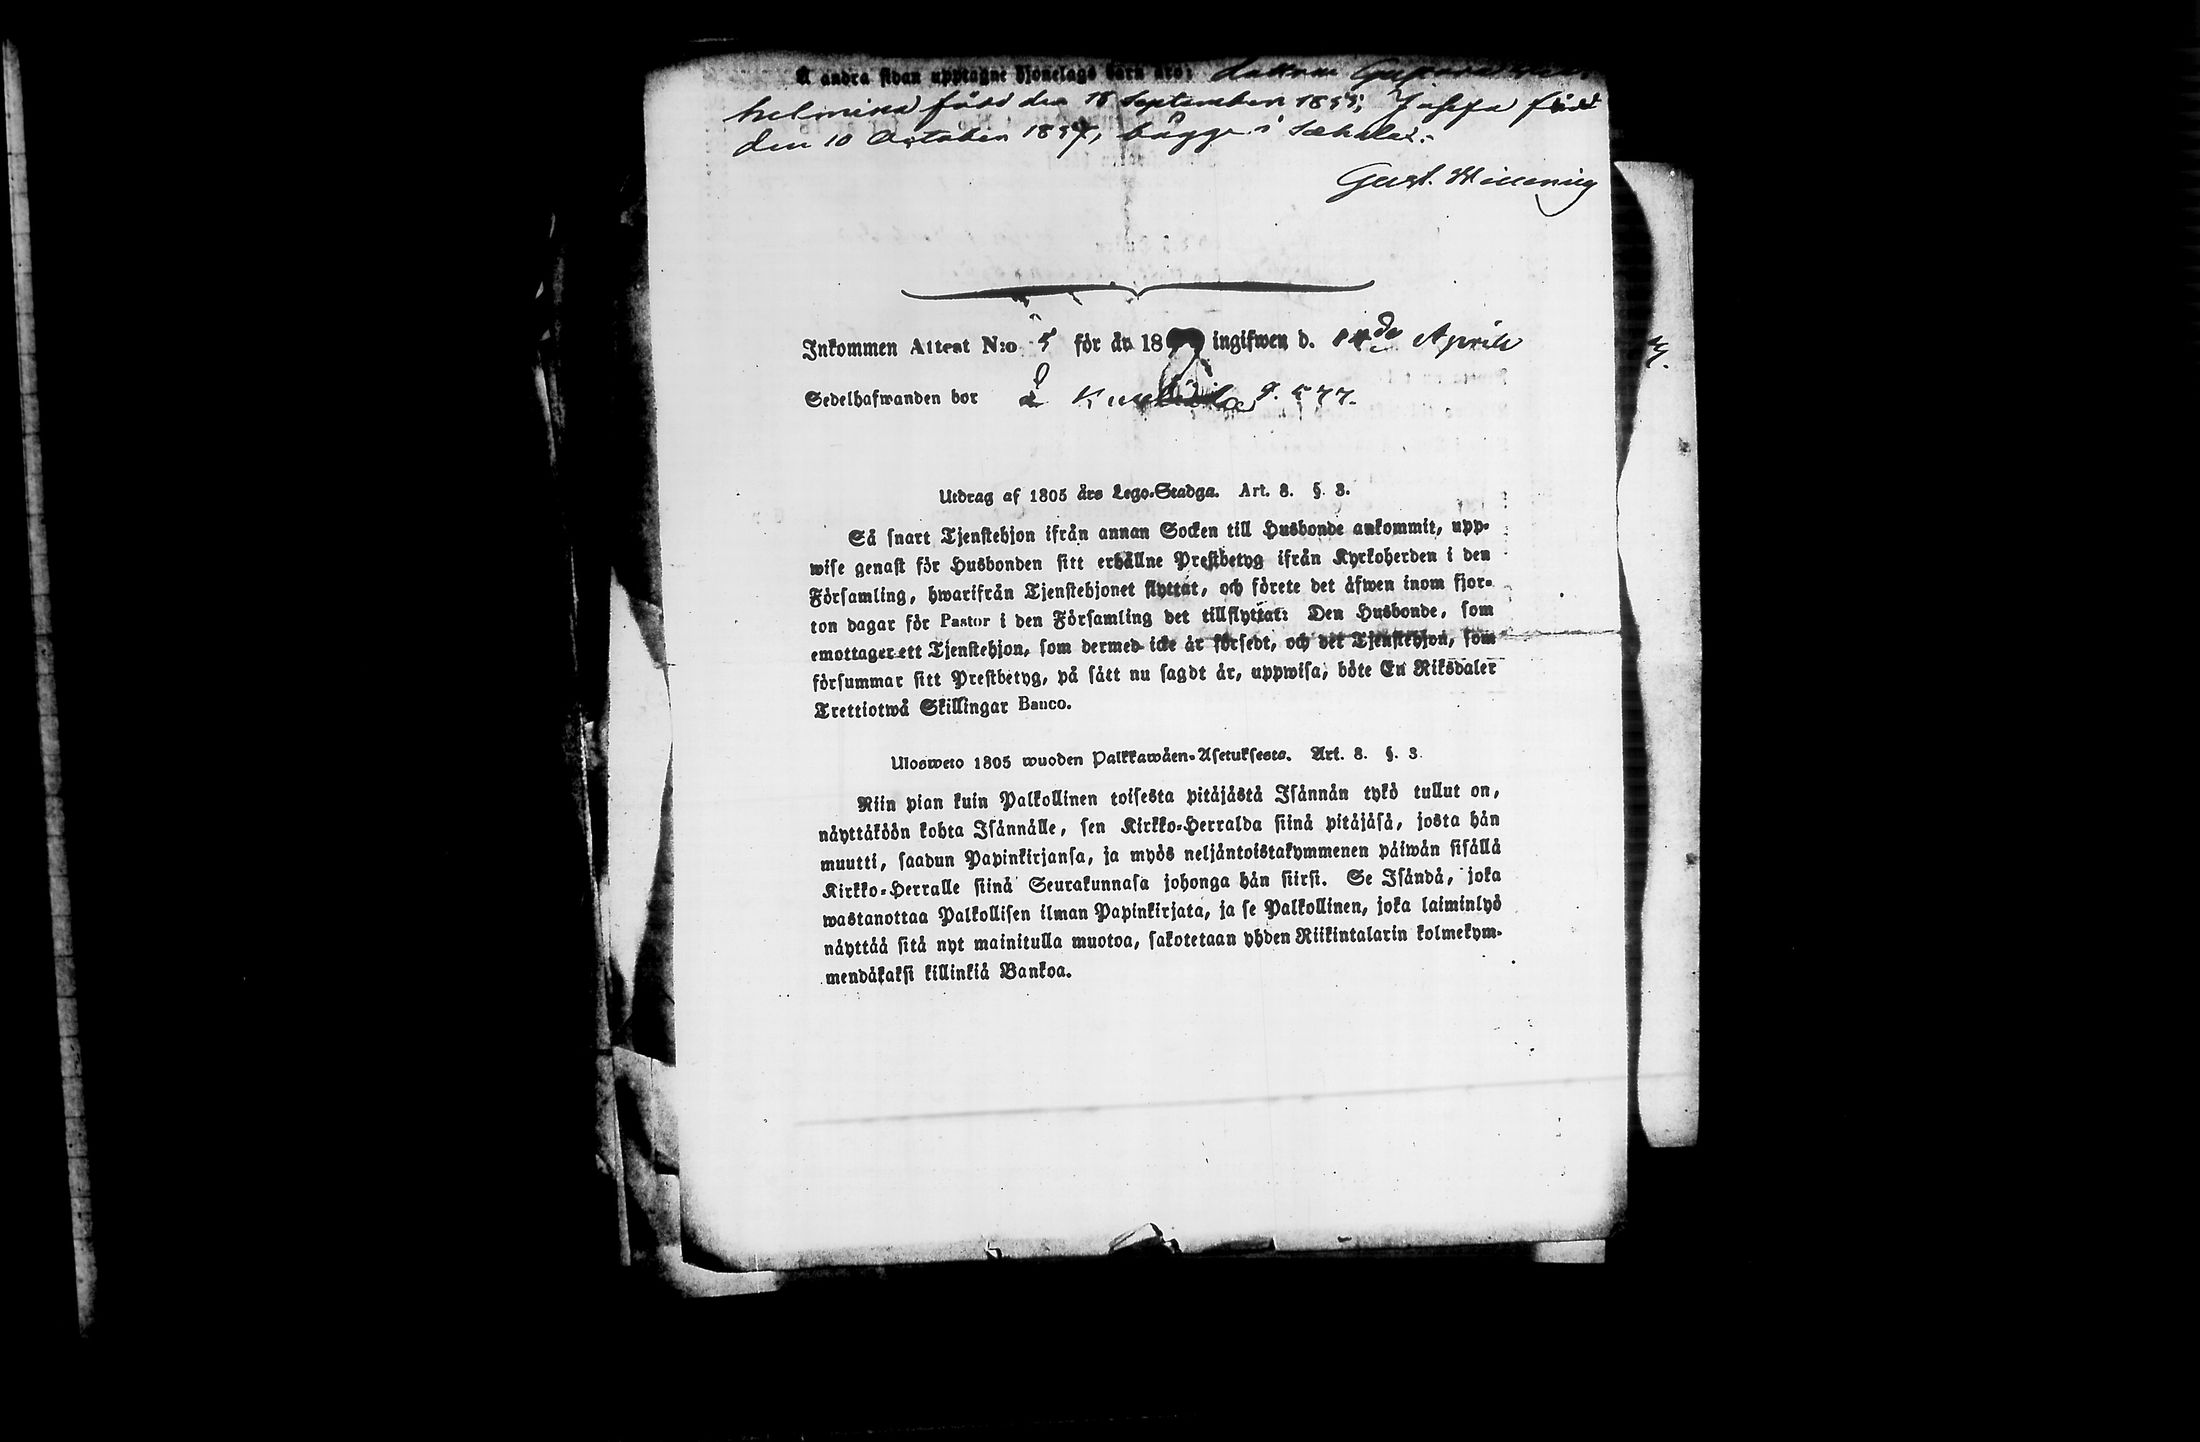 Å andra sidan upptagne hjonelags barn äro: dottren
helmina född den 18 September 1855; Josefa född
den 10 October 1857, bägge i Sækelax.
Gust.
Inkommen Attest N:o 5 för år 18 ingifwen d. 14de Aprill
Sedelhafwanden bor å p. 577.
Utdrag af 1805 års Lego-Stadga. Art. 8. §. 3.
Så snart Tjenstehjon ifrån annan Socken till Husbonde ankommit, upp-
wise genast för Husbonden sitt erhållne Prestbetyg ifrån Kyrkoherden i den
Församling, hwarifrån Tjenstehjonet flyttat, och förete det äfwen inom fjor-
ton dagar för Pastor i den Församling det tillflyttat: Den Husbonde, som
emottager ett Tjenstehjon, som dermed icke är försedt, och det Tjenstehjon, som
försummar sitt Prestbetyg, på sätt nu sagdt är, uppwisa, böte En Riksdaler
Trettiotwå Skillingar Banco.
Ulosweto 1805 wuoden Palkkawäen-Asetuksesta. Art. 8. §. 3.
Niin pian kuin Palkollinen toisesta pitäjästä Isännän tykö tullut on,
näyttäköön kohta Isännälle, sen Kirkko-Herralda siinä pitäjäsä, josta hän
muutti, saadun Papinkirjansa, ja myös neljäntoistakymmenen päiwän sisällä
Kirkko-Herralle siinä Seurakunnasa johonga hän siirsi. Se Isändä, joka
wastanottaa Palkollisen ilman Papinkirjata, ja se Palkollinen, joka laiminlyö
näyttää sitä nyt mainitulla muotoa, sakotetaan yhden Riikintalarin kolmekym-
mendäkaksi killinkiä Bankoa.